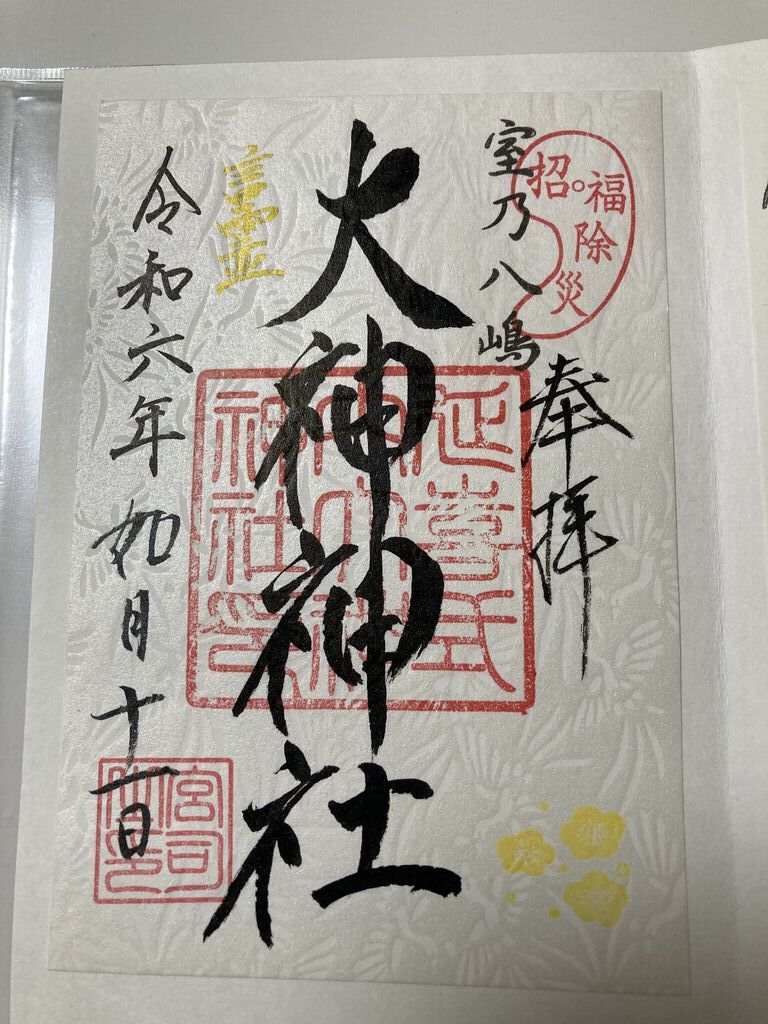 招福除災
奉拝
室乃八嶋
大神神社
延喜式
内大神
神社印
令和六年如月十一日
宮司
之印